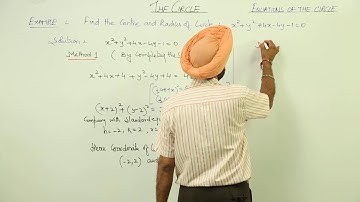 THE CIRCLE
EQUATIONS OF THE CIRCLE
EXAMPLE : Find the Centre and Radius of Circle x²+y²+4x-4y-1=0
Solution : x²+y²+4x-4y-1=0
Method 1 ( By completing the
x²+4x+4 + y²-4y+4 =
(x+2)² + (y-2)² =
Comparing with Standard
h=-2, k=2,
Here Coordinate of
(-2,2) and